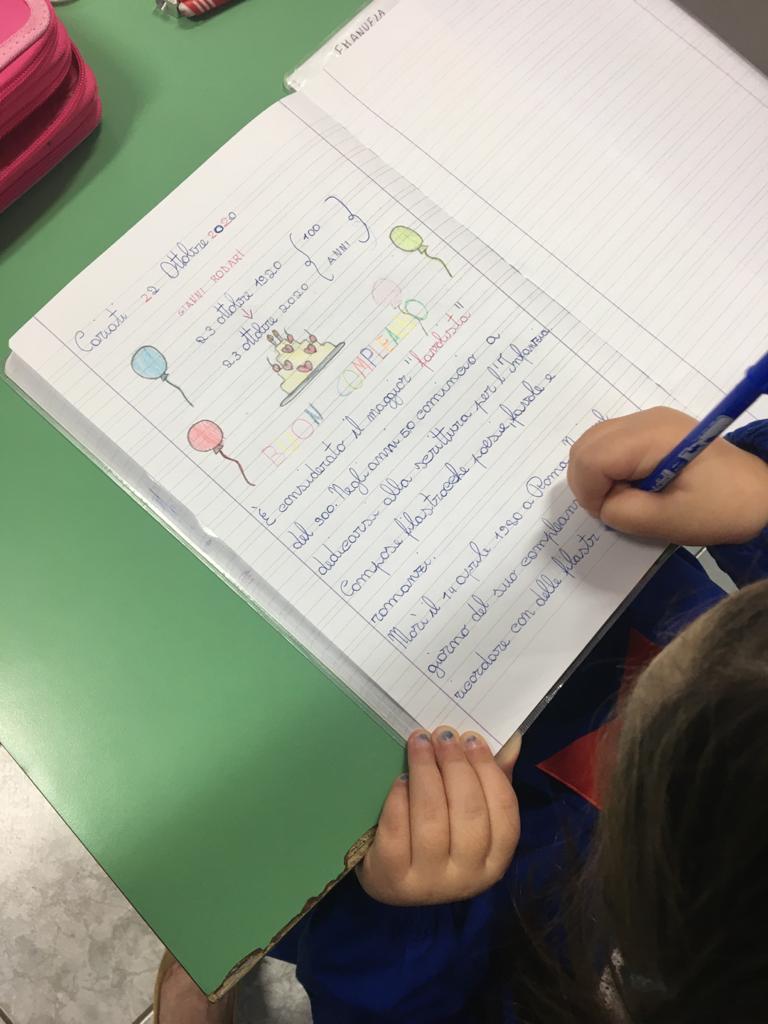 EMANUELA
Cariati 22 Ottobre 2020
GIANNI RODARI
23 ottobre 1920
23 ottobre 2020
100
ANNI
BUON COMPLEANNO
È considerato il maggior "favolista"
del 900. Negli anni 50 cominciò a
dedicarsi alla scrittura per l'Infanzia
Compose filastrocche poesie, favole e
romanzi.
Morì il 14 aprile 1980 a Roma
giorno del suo complean
ricordare con delle filastr